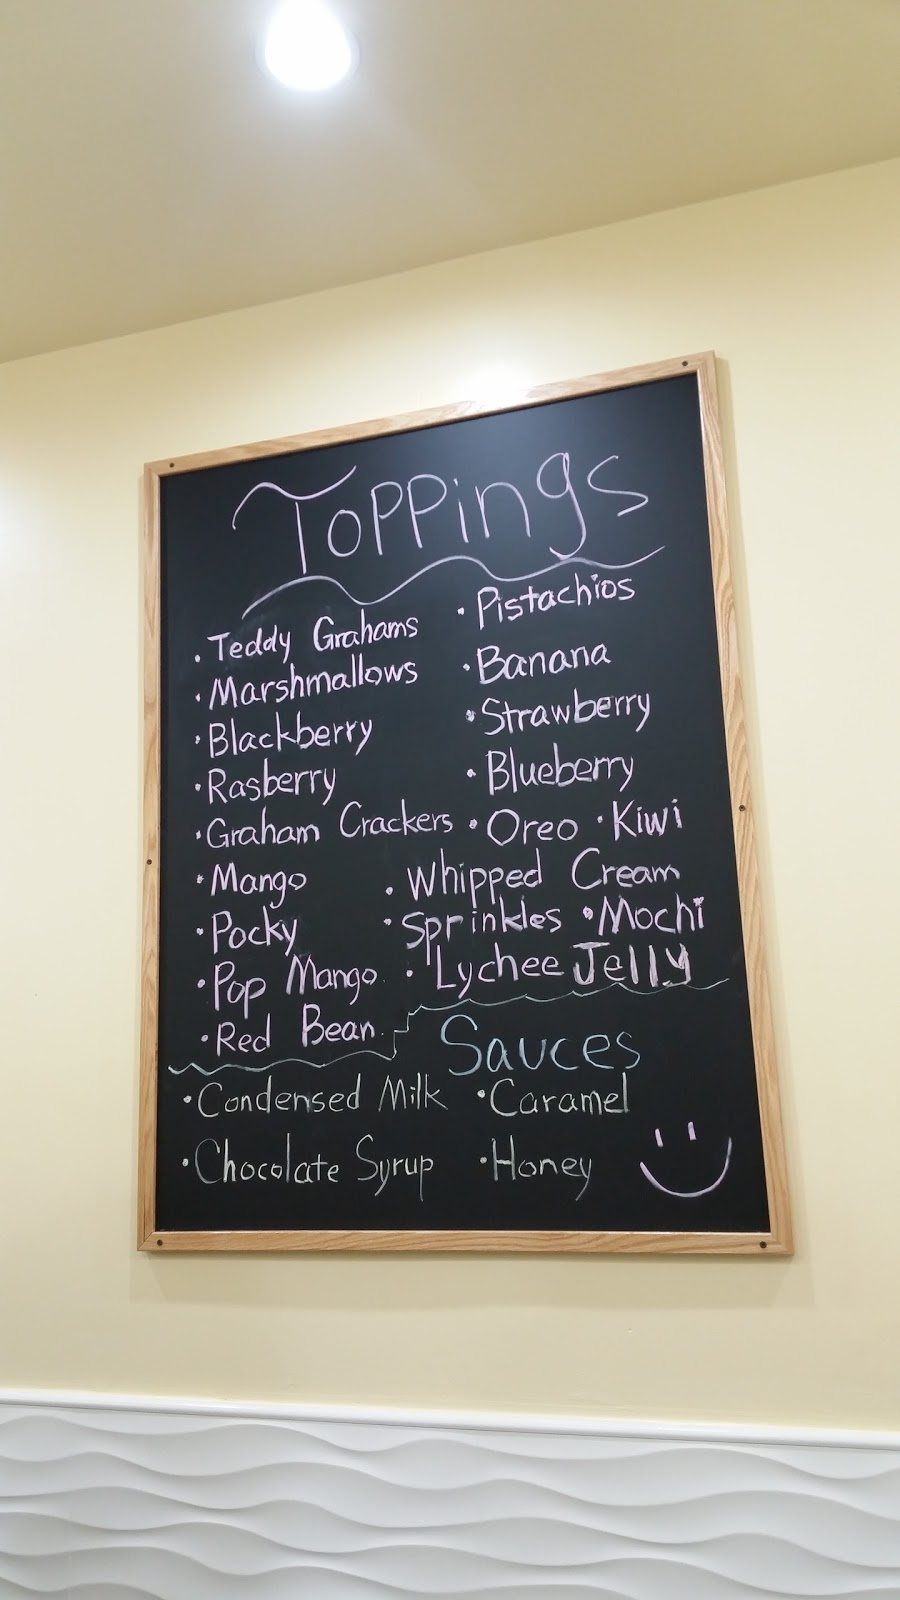 Toppings
· Teddy Grahams
· Marshmallows
· Blackberry
· Rasberry
· Graham Crackers
· Mango
· Pocky
· Pop Mango
· Red Bean
· Pistachios
· Banana
· Strawberry
· Blueberry
· Oreo · Kiwi
· Whipped Cream
· Sprinkles · Mochi
· Lychee Jelly
Sauces
· Condensed Milk · Caramel
· Chocolate Syrup · Honey